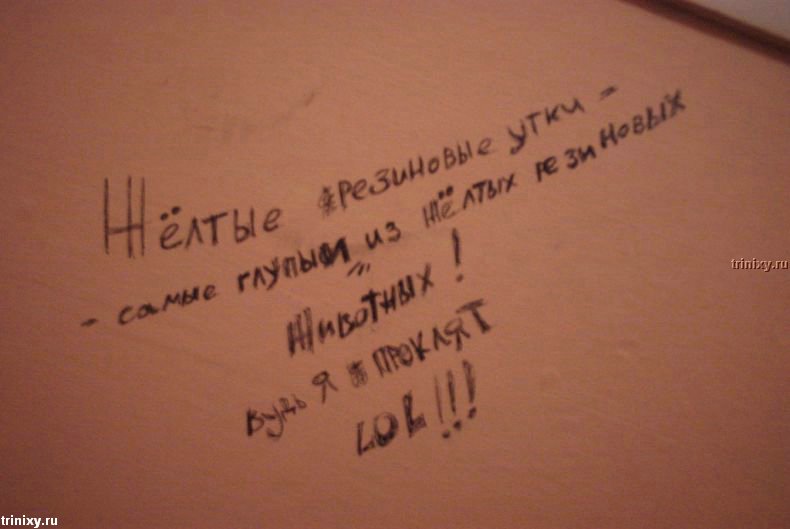 Жёлтые резиновые утки -
- самые глупыи из жёлтых резиновых
животных!
Будь я проклят
LOL!!!
trinixy.ru
trinixy.ru